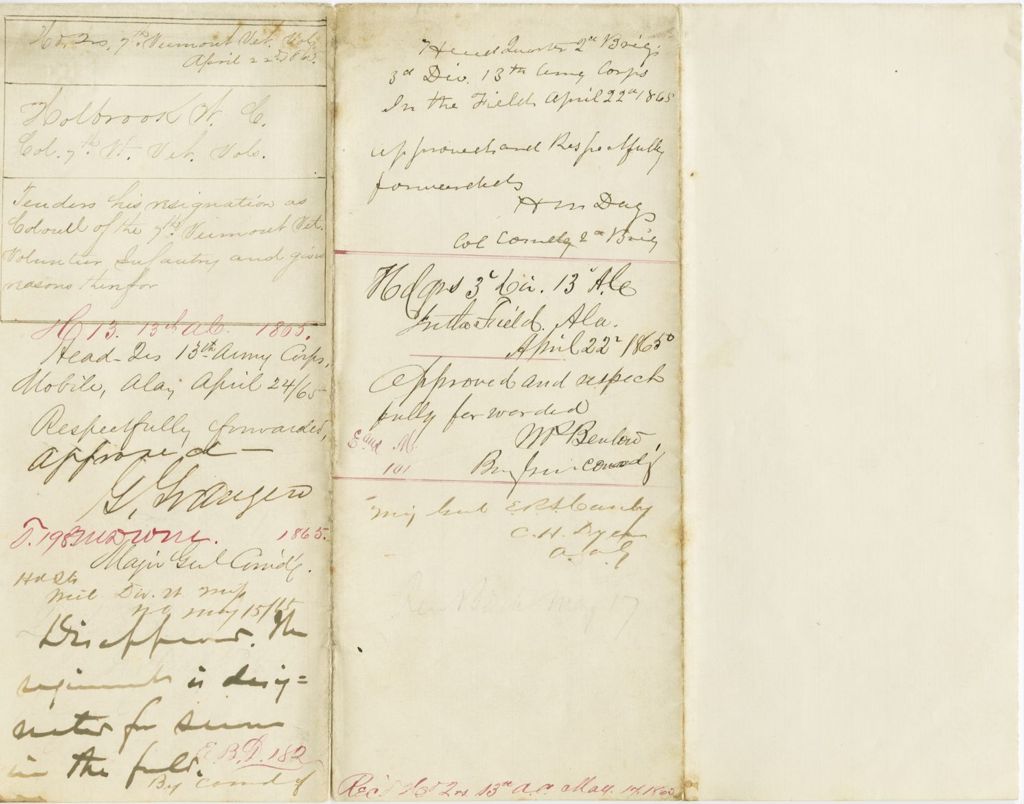 Hd. Qrs. 7th Vermont Vet. Vols.
April 22d 1865.
Holbrook W. C.
Col. 7th Vt. Vet. Vols.
Tenders his resignation as
Colonel of the 7th Vermont Vet.
Volunteer Infantry and gives
reasons therefor
H 13. 13th A.C. 1865.
Head-Qrs 13th Army Corps,
Mobile, Ala, April 24/65
Respectfully forwarded,
approved
G. Granger
1865.
Major Genl Comd'g.
Hd Qrs
Mil. Div. W. Miss
N.O. May 15/65
Disapproved. The
regiment is desig=
nated for service
in the field.
E.B.D. 182
By comd of
Head Quarters 2nd Brig.
3d Div. 13th Army Corps
In the Field April 22nd 1865
approved and Respectfully
forwarded
H M Day
Col Comdg 2nd Brig
Hdqrs 3d Div. 13th A.C.
In the Field. Ala.
April 22d 1865
Approved and respect
fully forwarded
WP Benton,
Brig Gen comd'g
E and M.
101
Maj Genl E.R.S. Canby
C. H. Dyer
A. A. G
May 17
Rec'd Hd Qrs 13th A.C. May 17, 1865